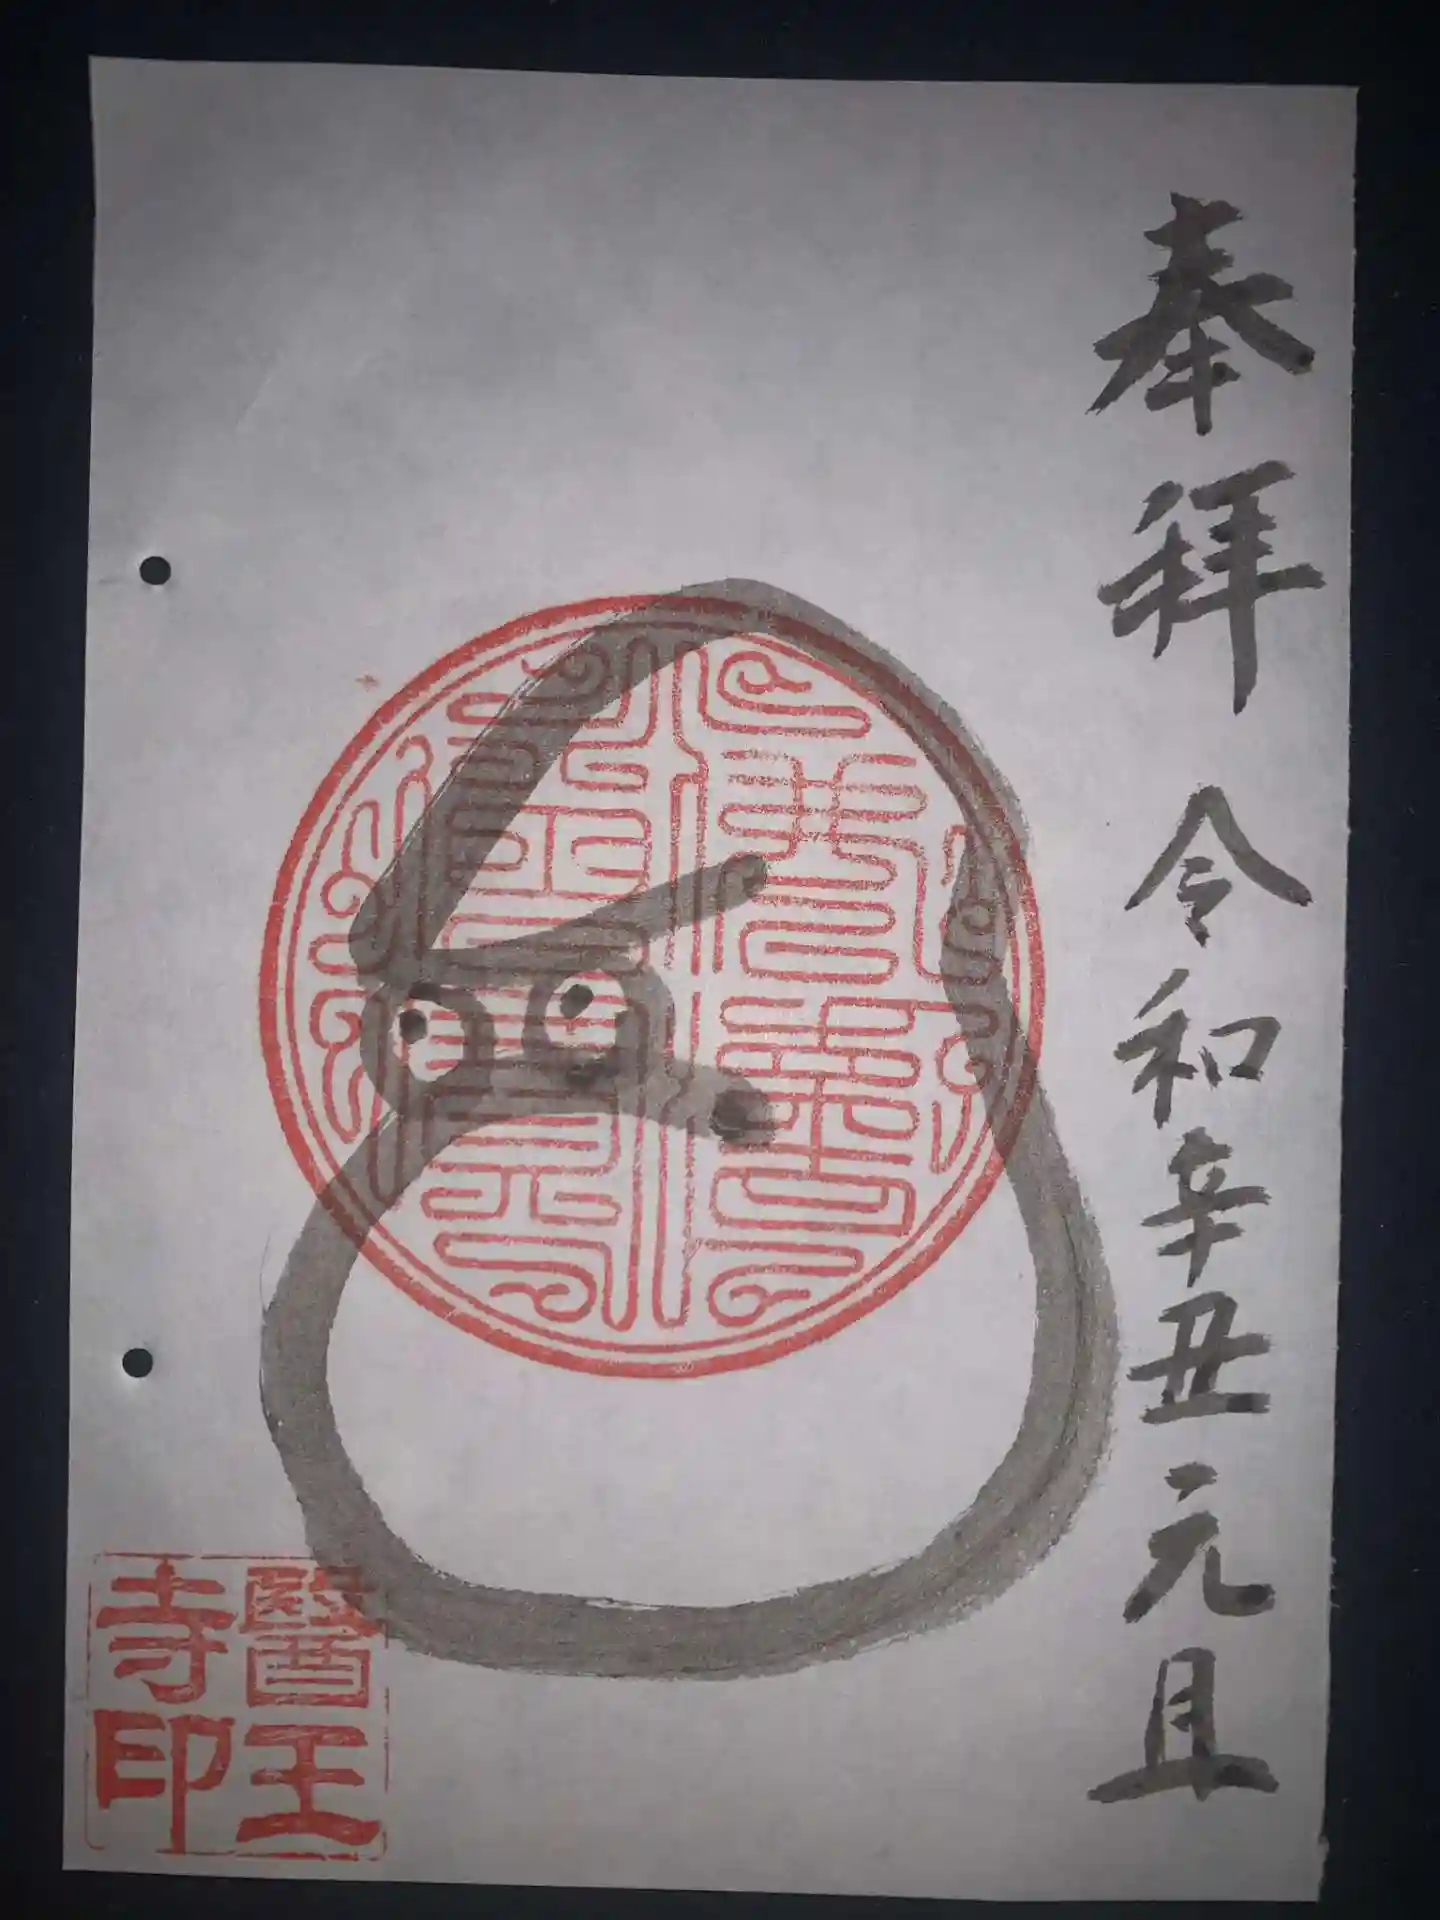 奉拝 令和辛丑元旦
醫王
寺印